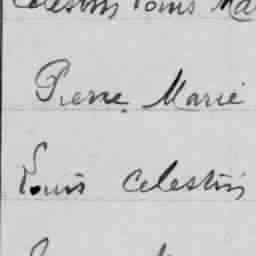 Celestin Louis Ma
Pierre Marie
Louis Celestin